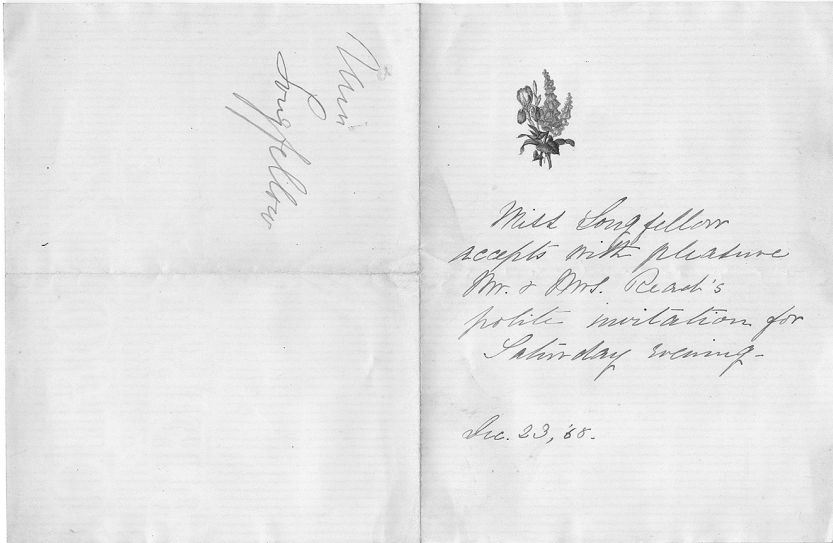 Miss
Longfellow
Miss Longfellow
accepts with pleasure
Mr. & Mrs. Read's
polite invitation for
Saturday evening -
Dec. 23, '68.